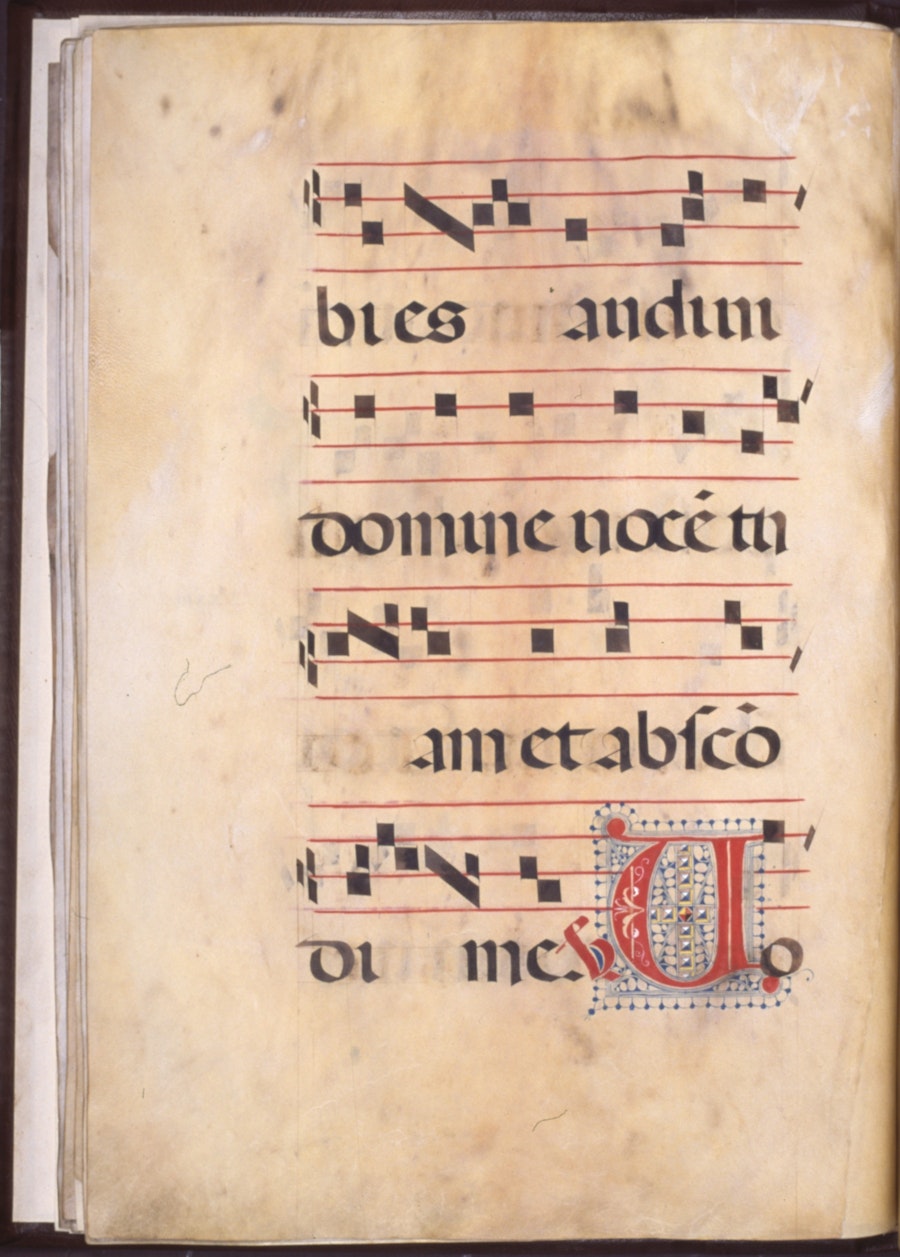 bi es audiui
domine uocē tu
am et abscō
di me. ℣ Uo